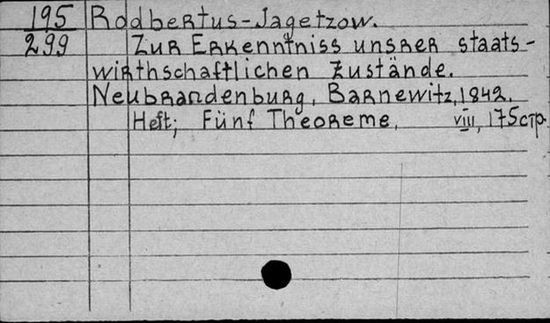 195 Rodbertus-Jagetzow.
299 Zur Erkenntniss unsrer staats-
wirthschaftlichen Zustände.
Neubrandenburg, Barnewitz, 1842.
Heft; Fünf Theoreme. VIII, 175 стр.